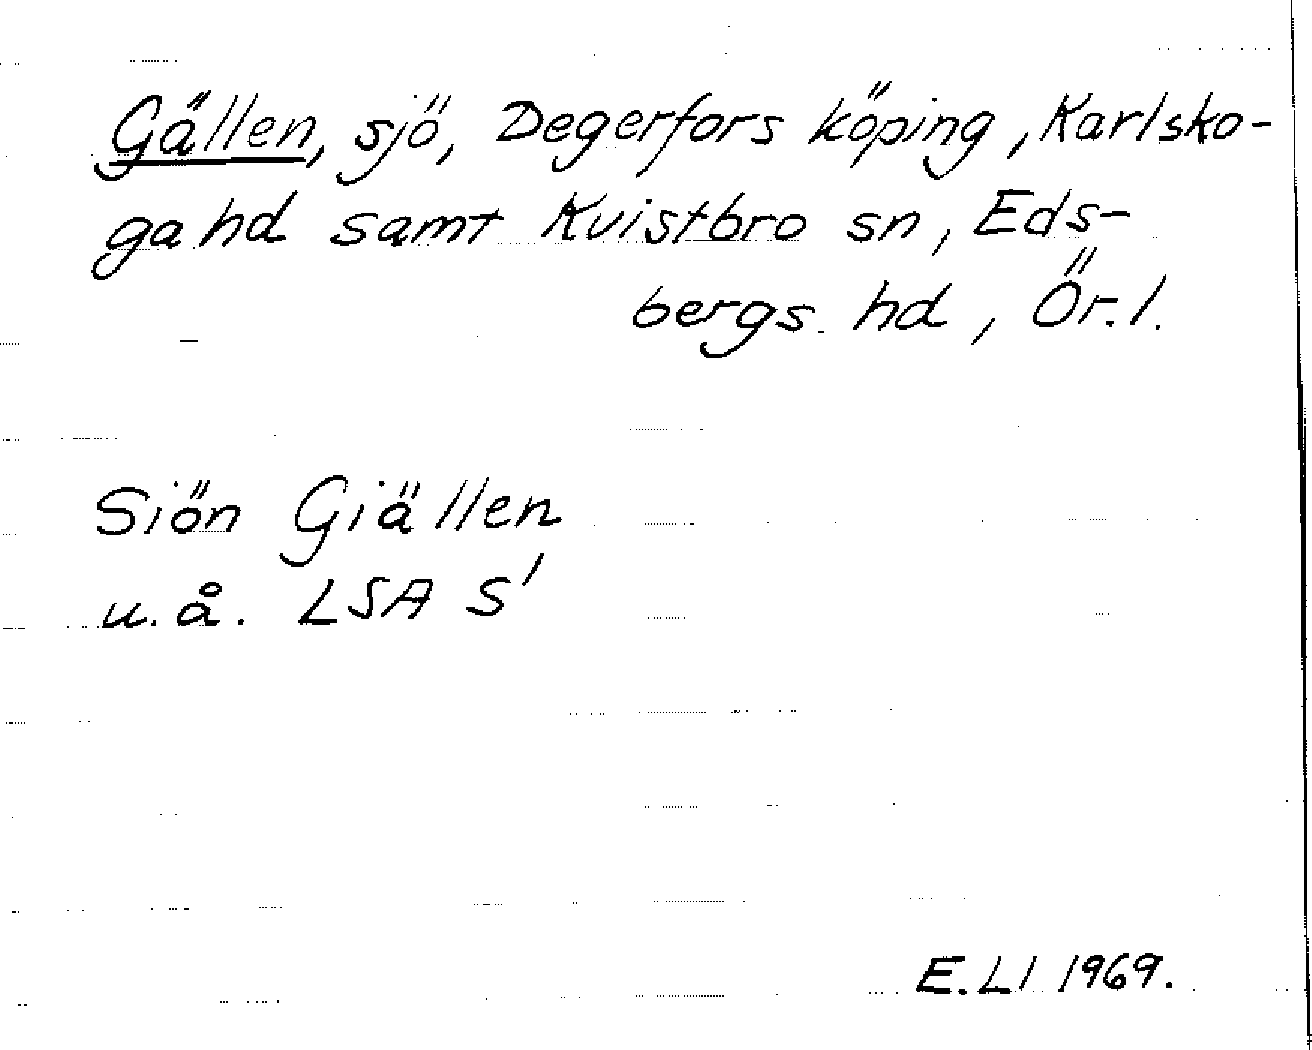 Gällen, sjö, Degerfors köping, Karlsko-
ga hd samt Kvistbro sn, Eds-
bergs hd, Ör. l.
Siön Giällen
u.å. LSA S'
E. LI 1969.